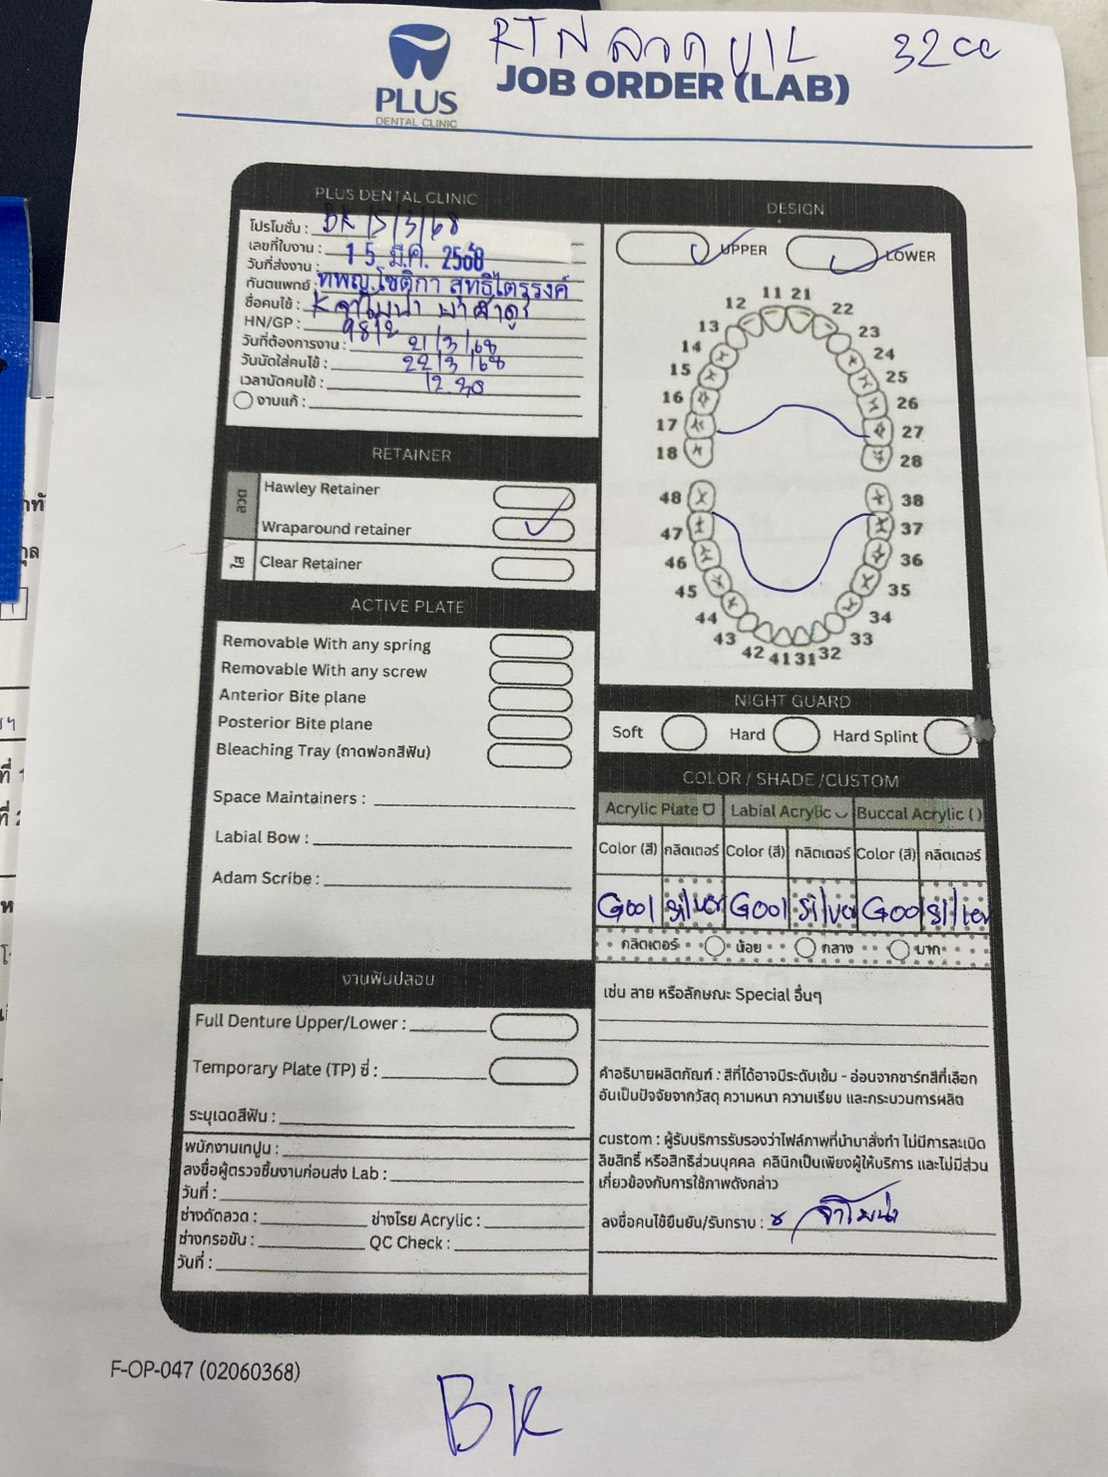 RTN ลวด U/L 32cc
PLUS
DENTAL CLINIC
JOB ORDER (LAB)
PLUS DENTAL CLINIC
โปรโมชั่น :
เลขที่ใบงาน : BK 15/3/68
วันที่ส่งงาน : 15 มี.ค. 2568
ทันตแพทย์ : ทพญ.โชติกา สุทธิไตรรงค์
ชื่อคนไข้ :
HN/GP : 9812
วันที่ต้องการงาน : 21/3/68
วันนัดใส่คนไข้ : 22/3/68
เวลานัดคนไข้ : 12.30
งานแก้ :
RETAINER
ลวด
Hawley Retainer
Wraparound retainer
ใส
Clear Retainer
ACTIVE PLATE
Removable With any spring
Removable With any screw
Anterior Bite plane
Posterior Bite plane
Bleaching Tray (ถาดฟอกสีฟัน)
Space Maintainers :
Labial Bow :
Adam Scribe :
งานฟันปลอม
Full Denture Upper/Lower :
Temporary Plate (TP) ซี่ :
ระบุเฉดสีฟัน :
พนักงานเทปูน :
ลงชื่อผู้ตรวจชิ้นงานก่อนส่ง Lab :
วันที่ :
ช่างดัดลวด : ช่างโรย Acrylic :
ช่างกรอขัน : QC Check :
วันที่ :
DESIGN
UPPER LOWER
11 21
12 22
13 23
14 24
15 25
16 26
17 27
18 28
48 38
47 37
46 36
45 35
44 34
43 33
42 41 31 32
NIGHT GUARD
Soft Hard Hard Splint
COLOR / SHADE /CUSTOM
Acrylic Plate Labial Acrylic Buccal Acrylic ( )
Color (สี) กลิตเตอร์ Color (สี) กลิตเตอร์ Color (สี) กลิตเตอร์
G001 silver G001 silver G001 silver
กลิตเตอร์ น้อย กลาง มาก
เช่น ลาย หรือลักษณะ Special อื่นๆ
คำอธิบายผลิตภัณฑ์ : สีที่ได้อาจมีระดับเข้ม - อ่อนจากชาร์ทสีที่เลือก
อันเป็นปัจจัยจากวัสดุ ความหนา ความเรียบ และกระบวนการผลิต
custom : ผู้รับบริการรับรองว่าไฟล์ภาพที่นำมาสั่งทำ ไม่มีการละเมิด
ลิขสิทธิ์ หรือสิทธิส่วนบุคคล คลินิกเป็นเพียงผู้ให้บริการ และไม่มีส่วน
เกี่ยวข้องกับการใช้ภาพดังกล่าว
ลงชื่อคนไข้ยืนยัน/รับทราบ :
F-OP-047 (02060368)
BK